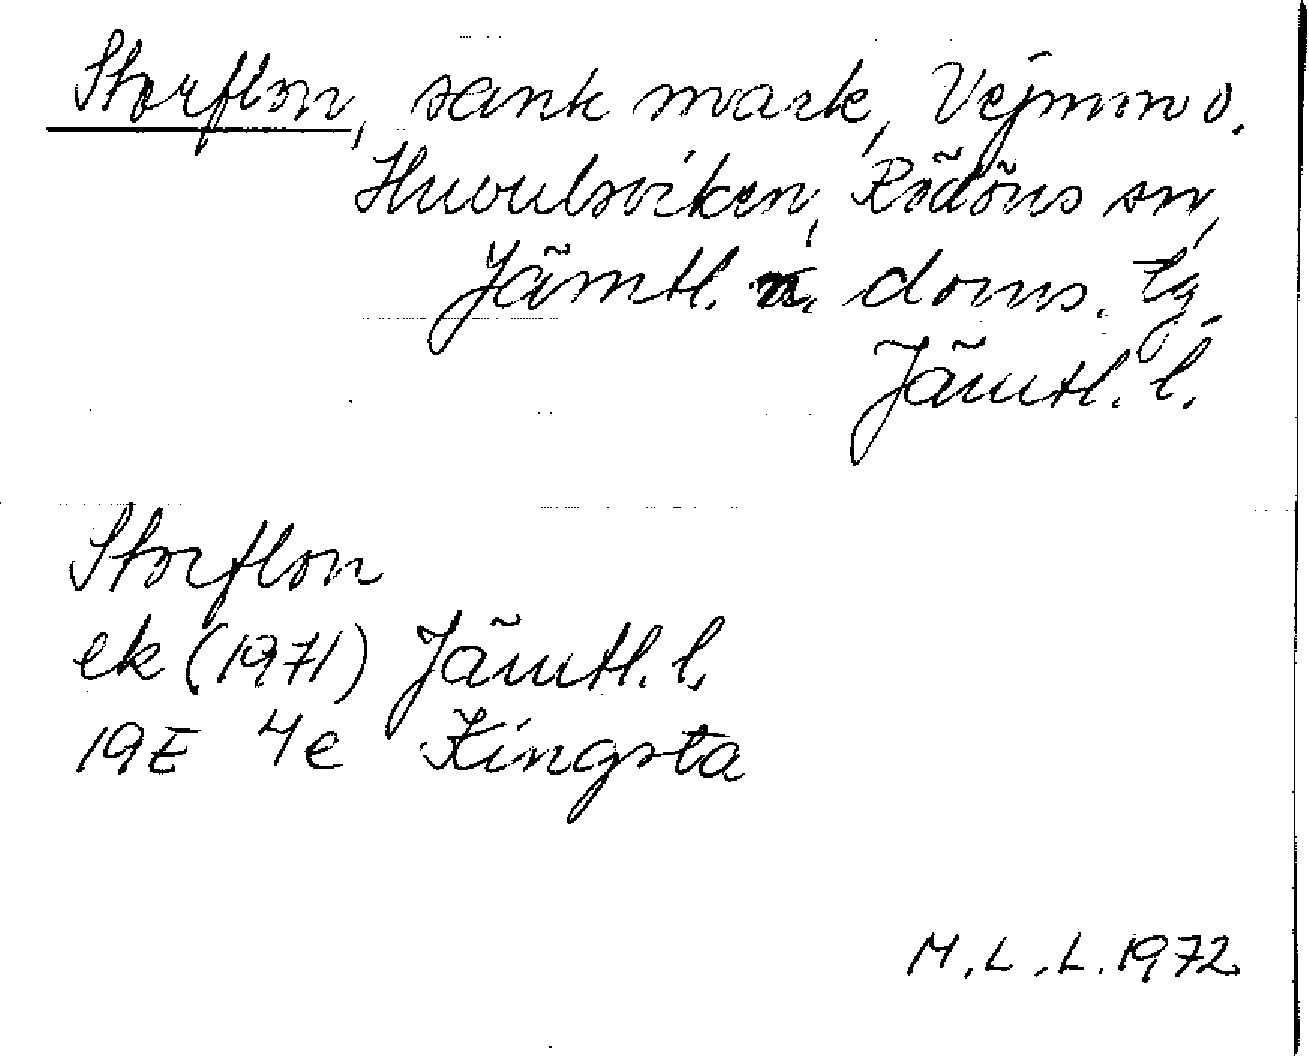 Storflon, sank mark, Vejmon o.
Huvulsviken, Rödöns sn,
Jämtl. n. doms. tg
Jämtl. l.
Storflon
ek (1971) Jämtl. l.
19E 4e Kingsta
M.L.L. 1972